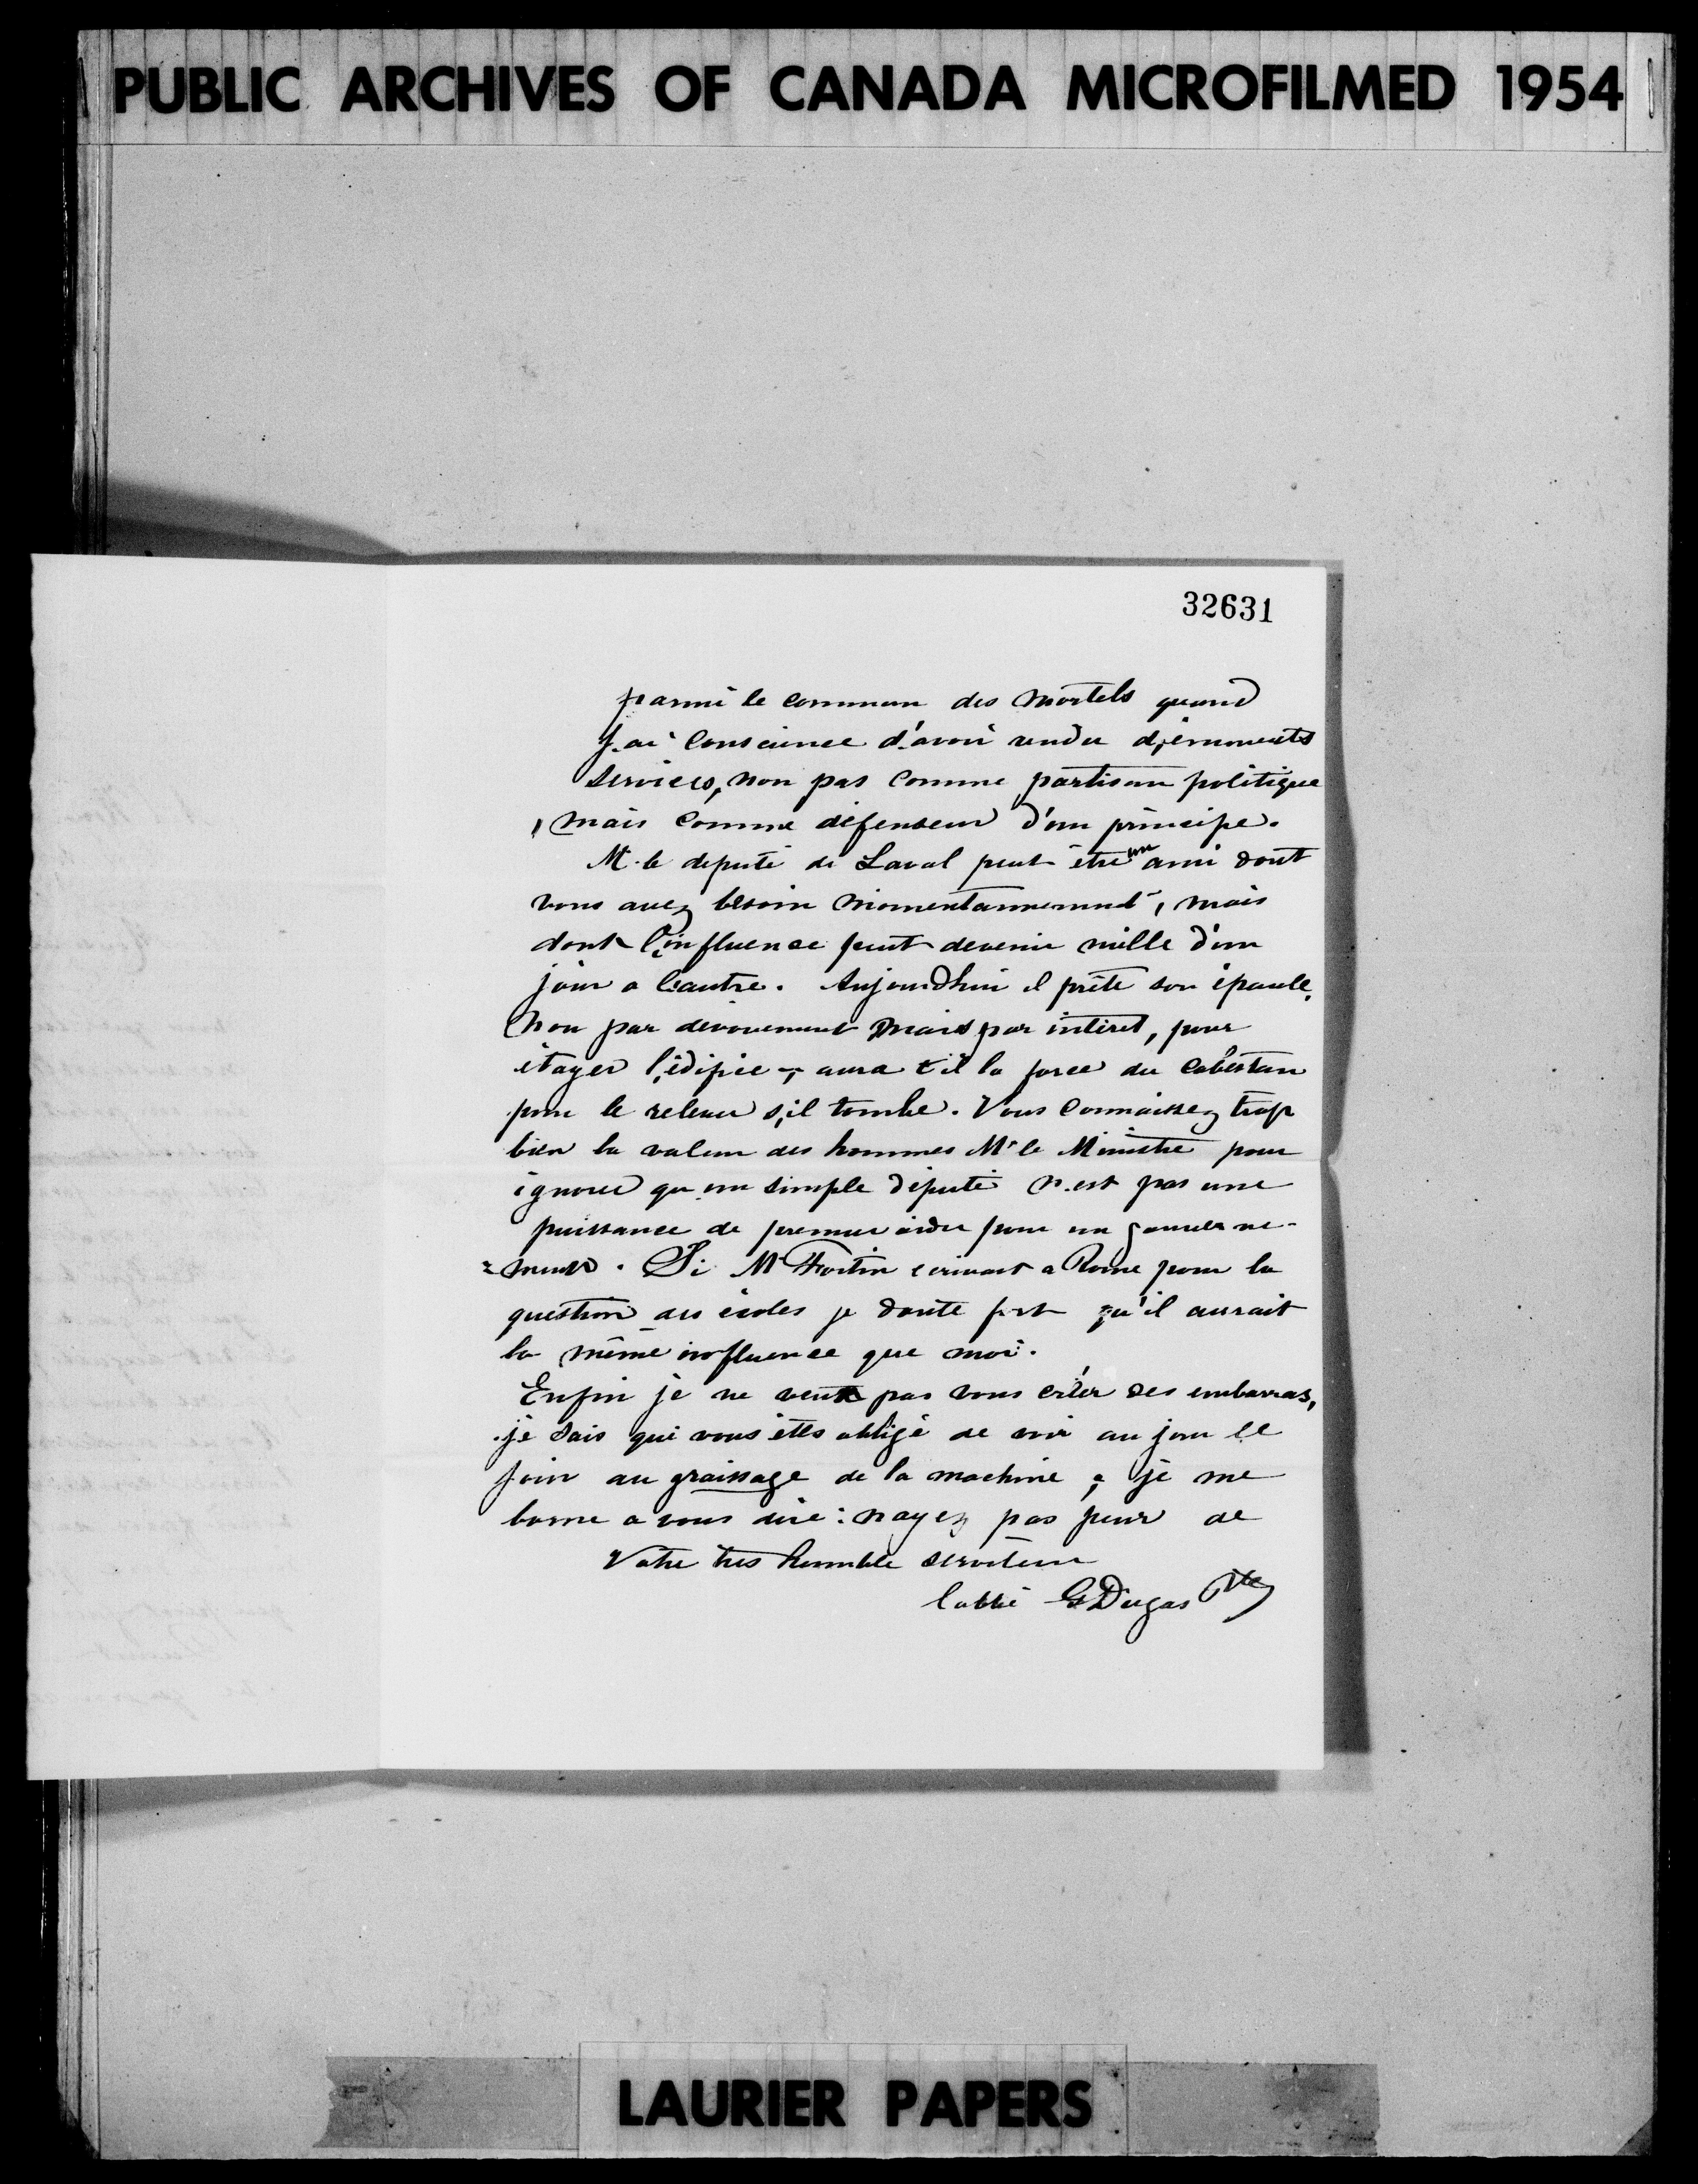 PUBLIC ARCHIVES OF CANADA MICROFILMED 1954
32631
parmi le commun des mortels quand
j'ai conscience d'avoir rendu d'éminents
services, non pas comme partisan politique
, mais comme défenseur d'un principe.
M. le député de Laval peut être un ami dont
vous avez besoin momentannemnt, mais
dont l'influence peut devenir nulle d'un
jour a l'autre. Aujourdhui il prête son épaule,
non par dévouement mais par intéret, pour
étayer l'édifice, aura t il la force du cabestan
pour le relever s'il tombe. Vous connaissez trop
bien la valeur des hommes Mr le Ministre pour
ignorer qu'un simple député n'est pas une
puissance de premier ordre pour un gouverne-
=ment. Si Mr Fortin écrivait a Rome pour la
question des écoles je doute fort qu'il aurait
la même influence que moi.
Enfin je ne veux pas vous créer des embarras,
je sais que vous êtes obligé de voir au jour le
jour au graissage de la machine, je me
borne a vous dire : nayez pas peur de
Votre tres humble serviteur
l'abbé G Dugas Ptre
LAURIER PAPERS